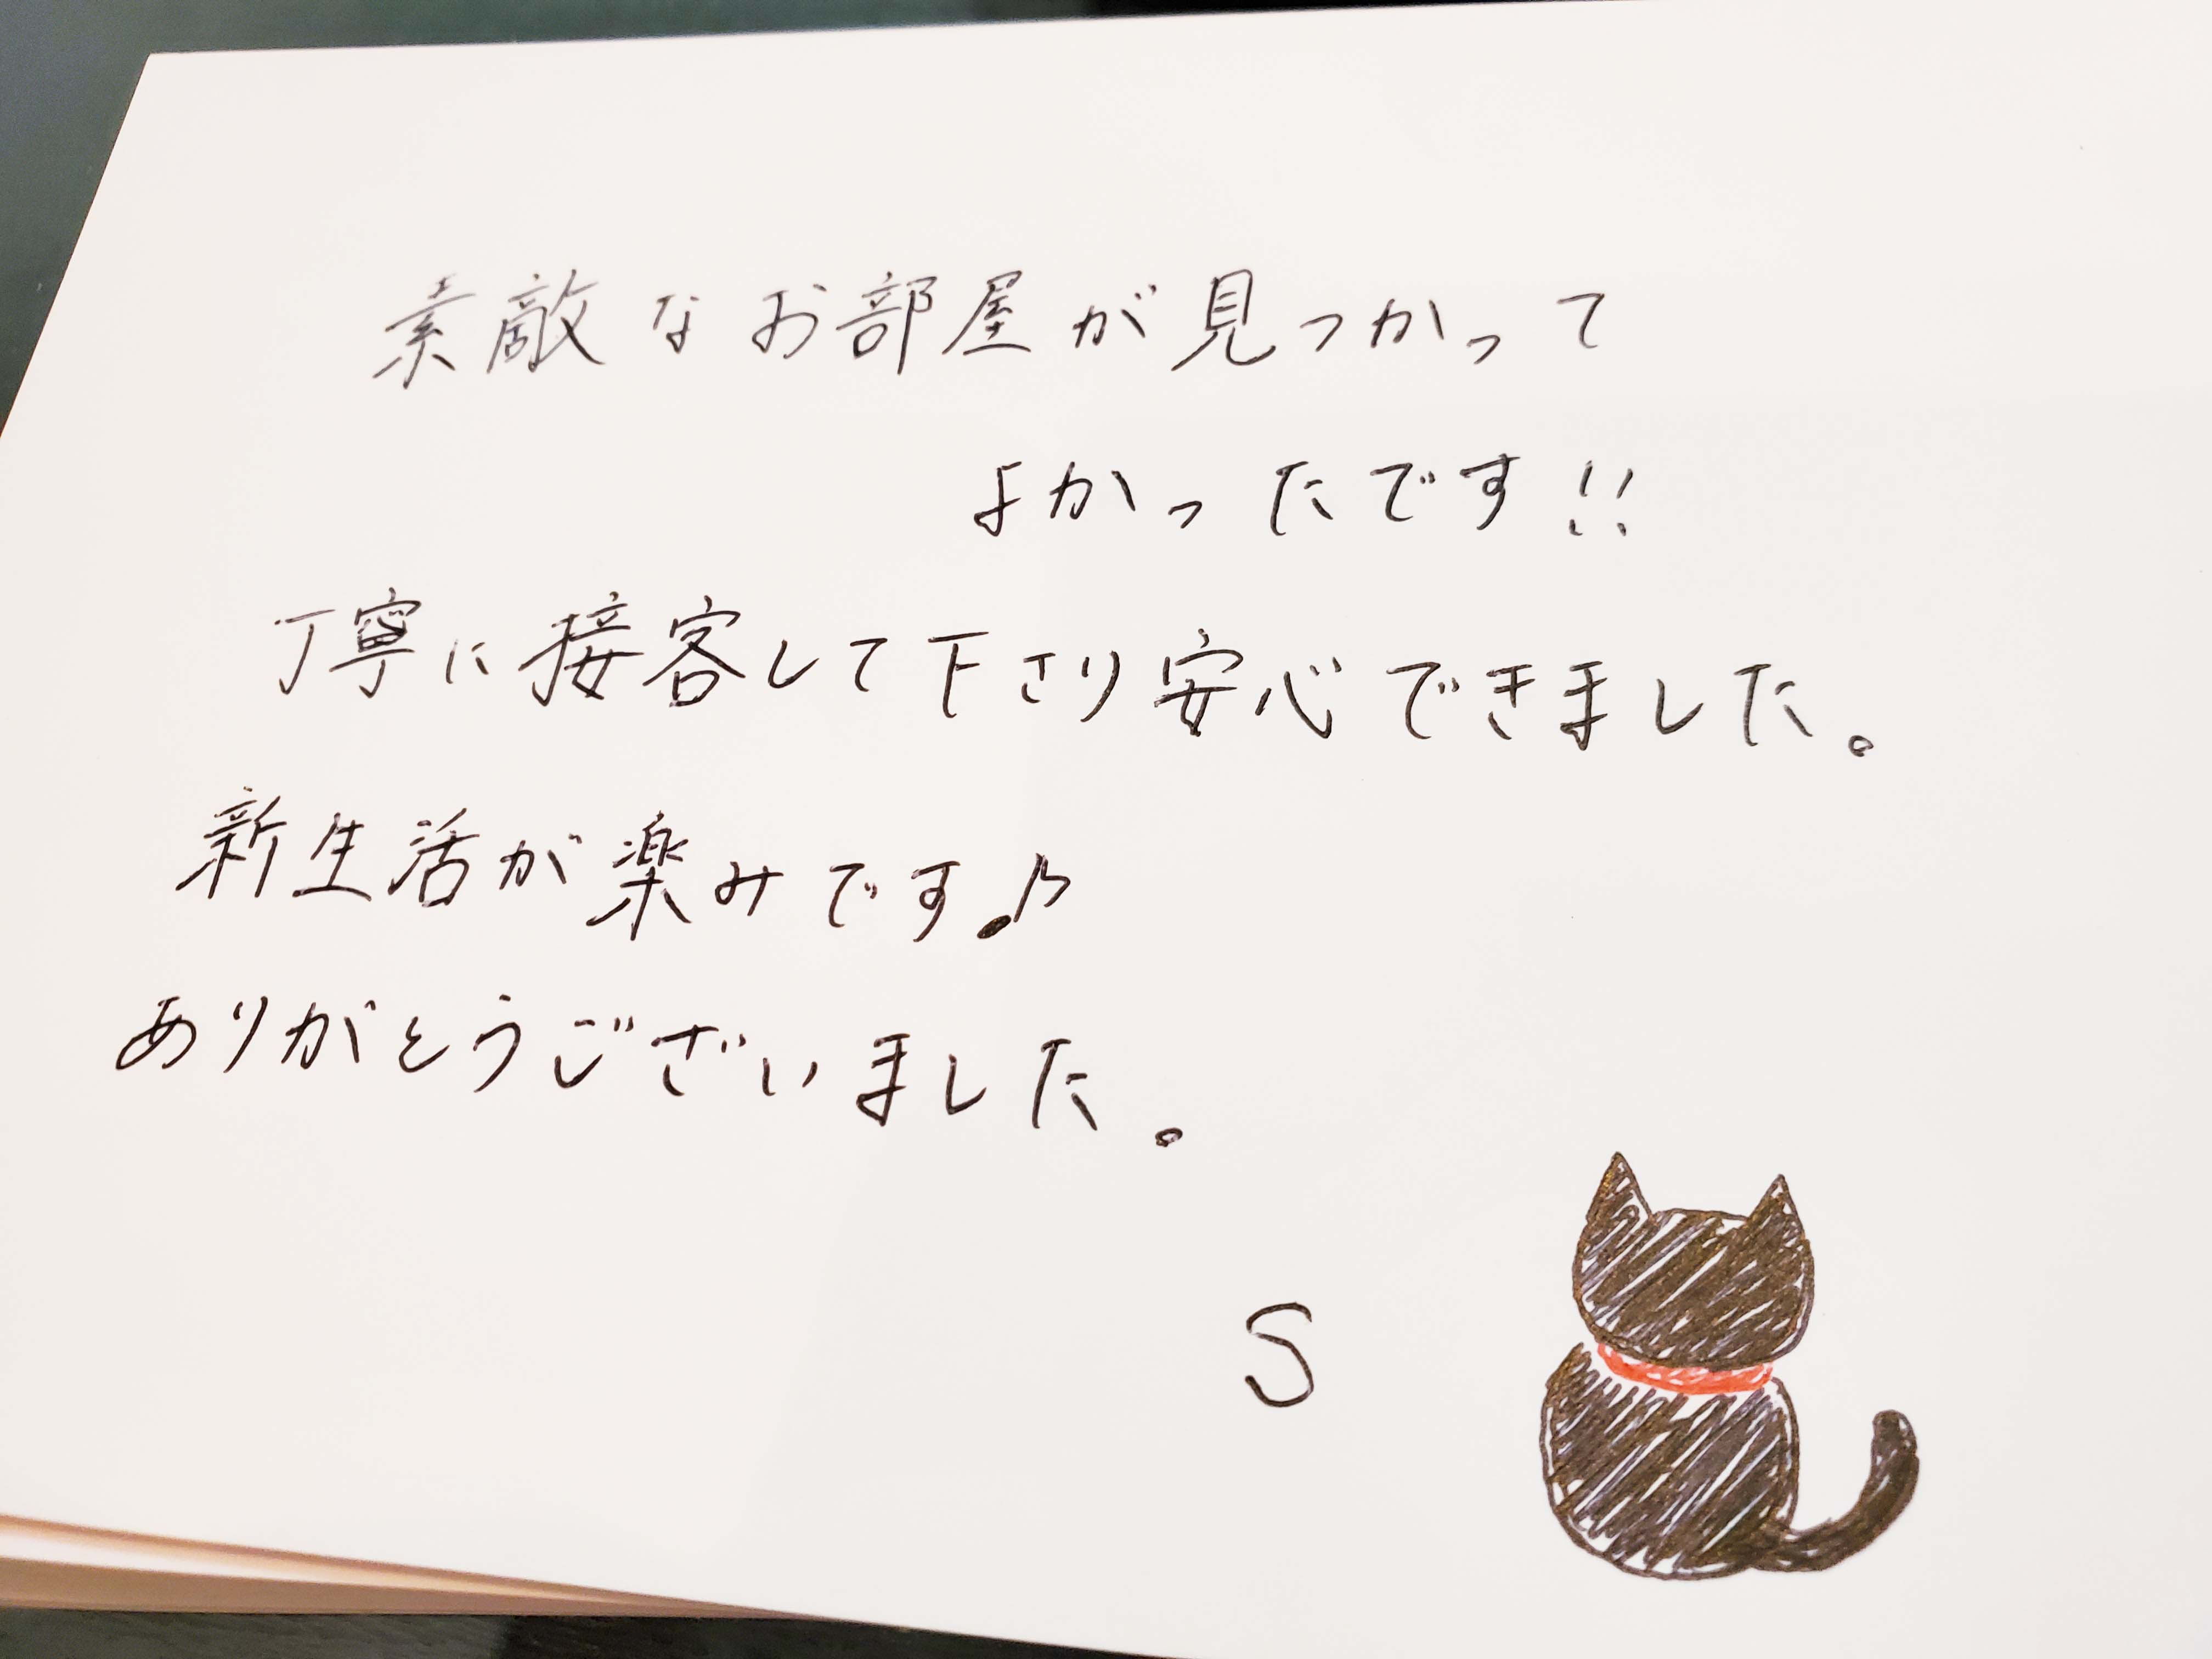 素敵なお部屋が見つかって
よかったです!!
丁寧に接客して下さり安心できました。
新生活が楽みです♪
ありがとうございました。
S